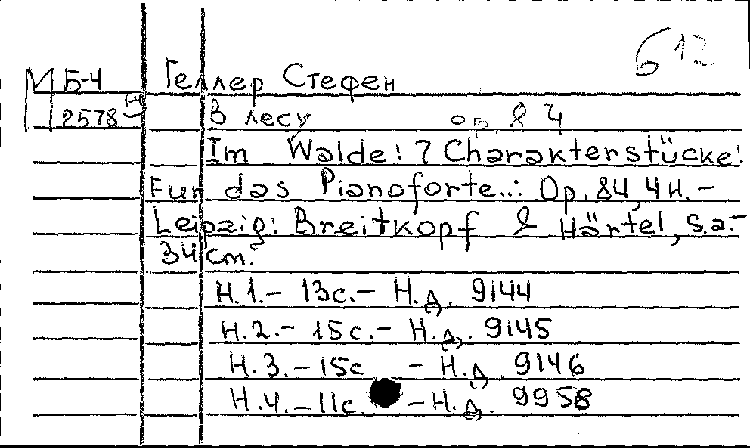 612
М Б-4 Геллер Стефен
2578 В лесу ор 84
Im Walde! 7 Charakterstücke!
Fur das Pianoforte..: Op. 84, 4н.-
Leipzig: Breitkopf & Härtel, s.a.-
34 cm.
Н.1.- 13с.- Н.Д. 9144
Н.2.- 15с.- Н.Д. 9145
Н.3.- 15с - Н.Д. 9146
Н.4.- 11с. - Н.Д. 9958